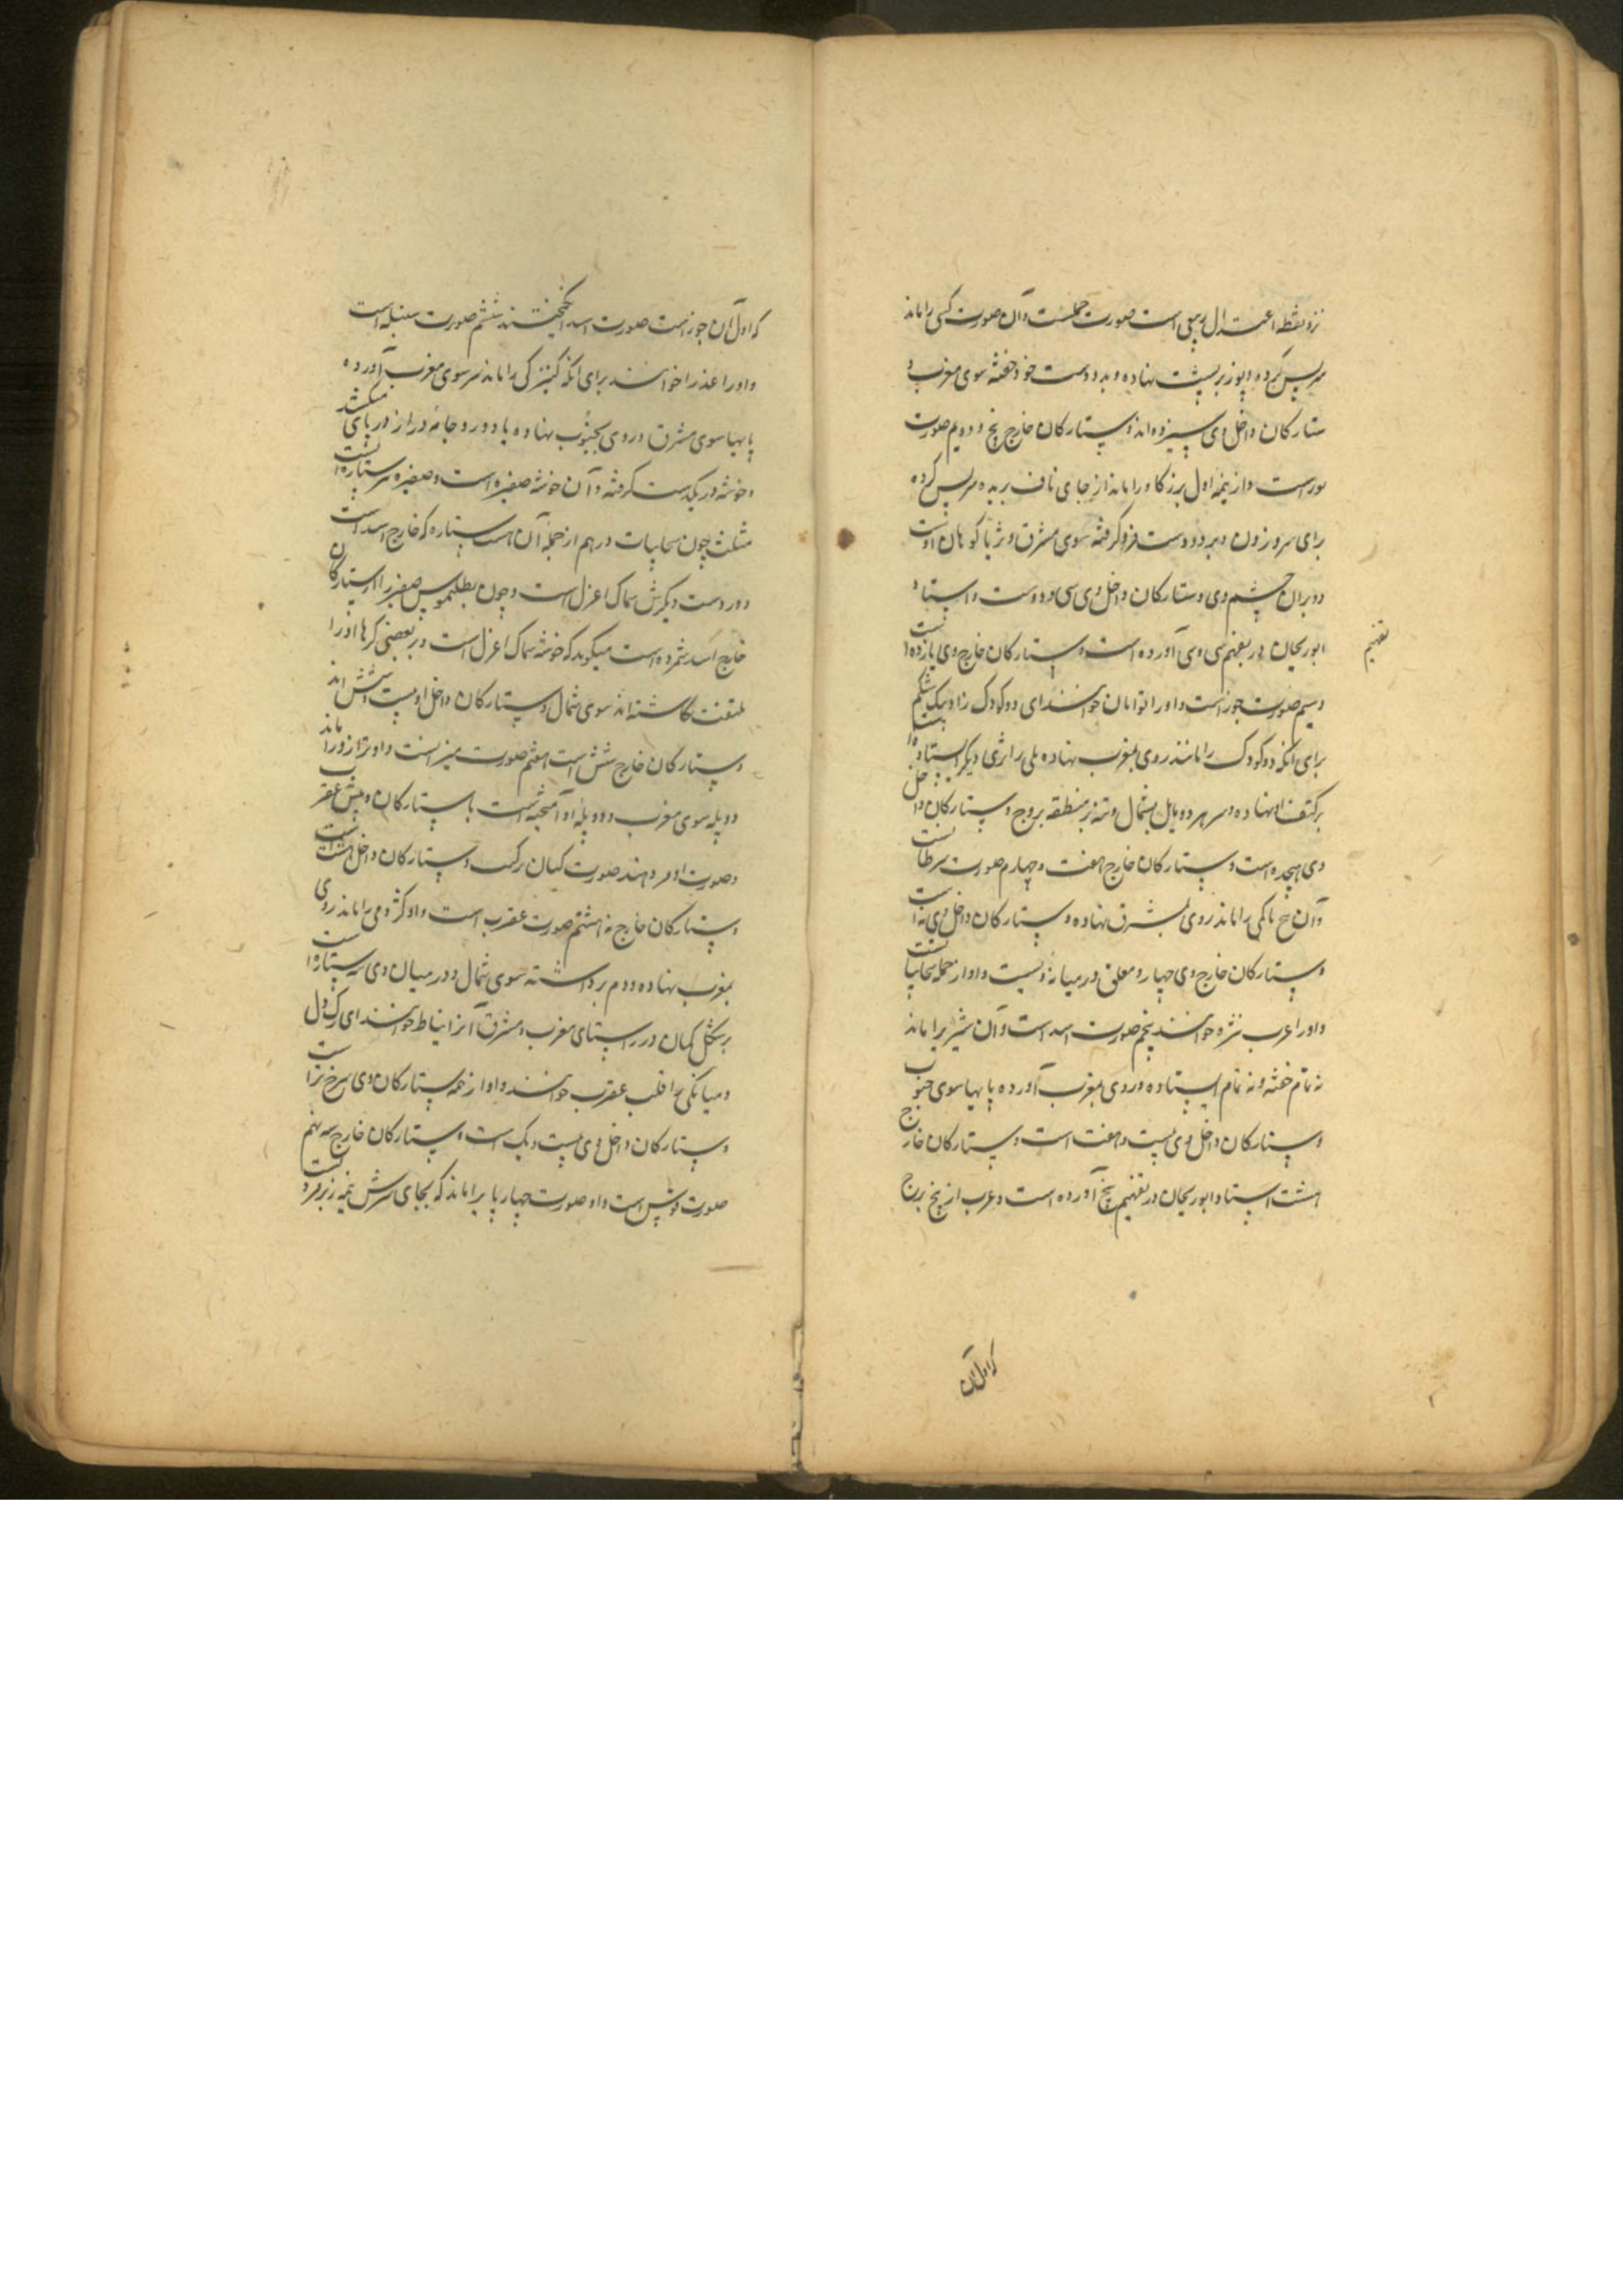 نزد نقطه اعتدال ربیعی است صورت حملست و آن صورت کبشی را ماند
سر پس کرده و پوز بر پشت نهاده و بدو دست خود خفته سوی مغرب و
ستارکان داخل وی سیزده اند و ستارکان خارج پنج و دویم صورت
ثور است و از نیمه اول برز کاو را ماند از جای ناف بریده سر پس کرده
برای سرو زدن و هر دو دست فرو کرفته سوی مشرق و ثریا کوهان اوست
و دبران چشم وی و ستارکان داخل وی سی و دوست و استاد
ابوریحان در تفهیم سی و سی آورده است و ستارکان خارج وی یازده است
تفهیم
و سیم صورت جوزاست و او را توامان خوانند ای دو کودک زاد بیک شکم
برای آنکه دو کودک را مانند روی بمغرب نهاده یکی را بر دیکر ایستاده
بر کتف نهاده و سر هر دو مایل بشمال و تنه بر منطقه بروج و ستارکان داخل
وی هجده است و ستارکان خارج هفت و چهارم صورت سرطانست
و آن خرچنکی را ماند روی بمشرق نهاده و ستارکان داخل وی نه است
و ستارکان خارج وی چهار و معلف در میانه ویست و او از جمله سحابیا تست
و او را عرب نثره خوانند پنجم صورت اسد است و آن شیری را ماند
نه تمام خفته و نه تمام ایستاده و روی بمغرب آورده پایها سوی جنوب
و ستارکان داخل وی بیست و هفت است و ستارکان خارج
هشت استاد ابوریحان در تفهیم پنج آورده است و عرب از پنج برج
که اول آن
که اول آن جوزاست صورت اسد انکیختند ششم صورت سنبله است
و او را عذرا خوانند برای آنکه کنیزکی را ماند سر سوی مغرب آورده
پایها سوی مشرق و روی بجنوب نهاده با دو پر و جامهٔ دراز در پای میکشد
و خوشه در یکدست کرفته و آن خوشه صفیره است و صفیره سه ستاره است
مثلث چون سحابیات در هم از جمله آن هشت ستاره که خارج اسد است
و در دست دیکرش سماک اعزل است و چون بطلیموس صفیره را از ستارکان
خارج اسد شمرده است میکوید که خوشه سماک اعزل است و در بعضی کرها او را
ملتفت نکاشته اند سوی شمال و ستارکان داخل او بیست و شش اند
و ستارکان خارج شش است هفتم صورت میزانست و او ترازو را ماند
دو پله سوی مغرب و دو پلهٔ او آمیخته است با ستارکان و نیش عقرب
و صورت او مر و هند صورت کپان برکت و ستارکان داخل هشت است
و ستارکان خارج نه هشتم صورت عقرب است و او کژدمی را ماند روی
بمغرب نهاده و دم برداشته سوی شمال و در میان وی سه ستاره است
بر شکل کمان در راستای مغرب و مشرق آنرا نیاط خوانند ای رک دل
و میانکی را قلب عقرب خوانند و او از همه ستارکان وی سرخ تر است
و ستارکان داخل وی بیست و یک است و ستارکان خارج سه نهم
صورت قوس است و او صورت چهارپایی را ماند که بجای سرش نیمه زبر مردست